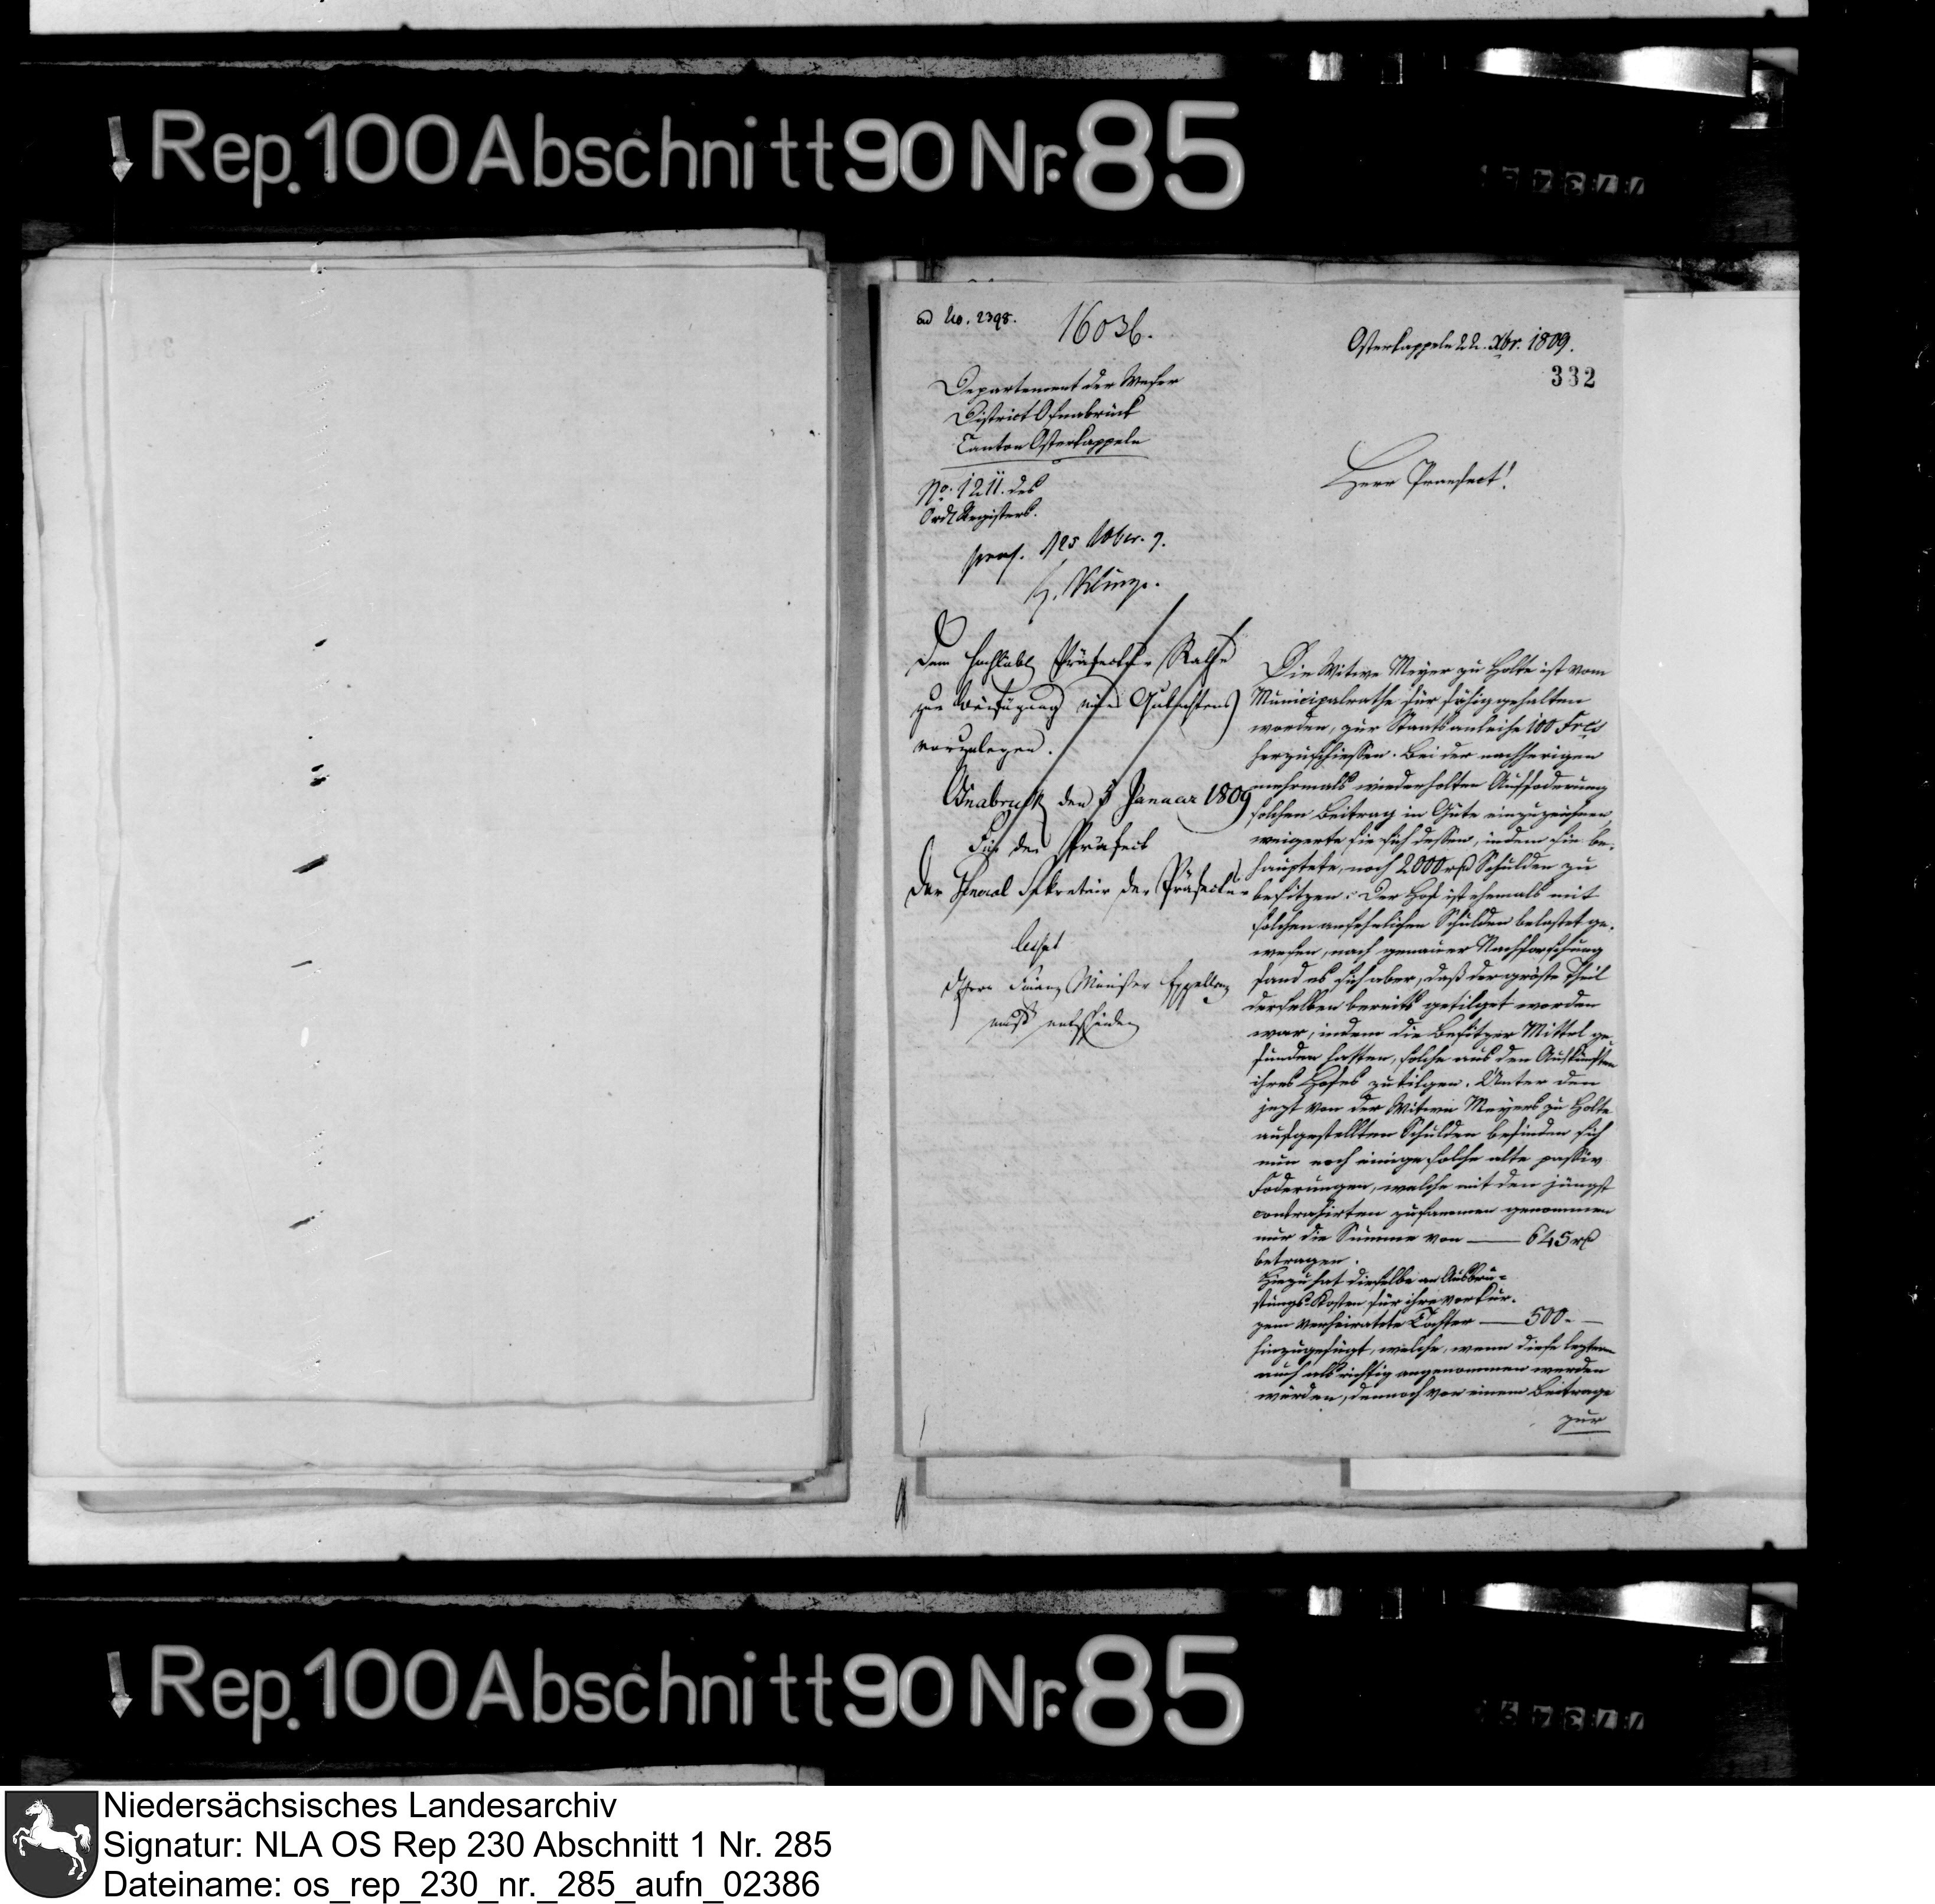 Rep. 100 Abschnitt 90 Nr. 85
ad No. 2398.
16036.
Osterkappeln 22. Xbr. 1809.
332
Departement der Weser
District Osnabrück
Canton Osterkappeln
No. 1211. des
Ord. Registers.
Herr Praefect!
Dem Präfectur Rathe
zur Beifügung eines Gutachtens
vorzulegen.
Osnabruck den 5 Januar 1809
Für den Präfect
Der General Sekretair der Präfectur
Herrn Finanz Minister
muß entscheiden
Die Witwe Meyer zu Holte ist vom
Municipalrathe für fähig gehalten
worden, zur Staatsanleihe 100 Frcs
herzuschiessen. Bei der nachherigen
mehrmals wiederholten Auffoderung
solchen Beitrag in Güte einzuzeichnen,
weigerte sie sich dessen, indem sie be-
hauptete, noch 2000 rß Schulden zu
besitzen. Der Hof ist ehemals mit
solchen ansehnlichen Schulden belastet ge-
wesen, nach genauer Nachforschung
fand es sich aber, daß der gröste Theil
derselben bereits getilget worden
war, indem die Besitzer Mittel ge-
funden hatten, solche aus den Aufkünften
ihres Hofes zu tilgen. Unter den
jezt von der Witwe Meyers zu Holte
aufgestellten Schulden befinden sich
nun noch einige solche alte passiv
Foderungen, welche mit den jüngst
contrahirten zusammen genommen
nur die Summe von — 645 rß
betragen.
Hiezu hat dieselbe an Ausbrü-
stungs-Kosten für ihre vor kur-
zem verheiratete Tochter — 500 - —
hinzugefügt, welche, wenn diese leztern
auch als richtig angenommen werden
würden, dennoch von einem Beitrage
zur
Rep. 100 Abschnitt 90 Nr. 85
Niedersächsisches Landesarchiv
Signatur: NLA OS Rep 230 Abschnitt 1 Nr. 285
Dateiname: os_rep_230_nr._285_aufn_02386